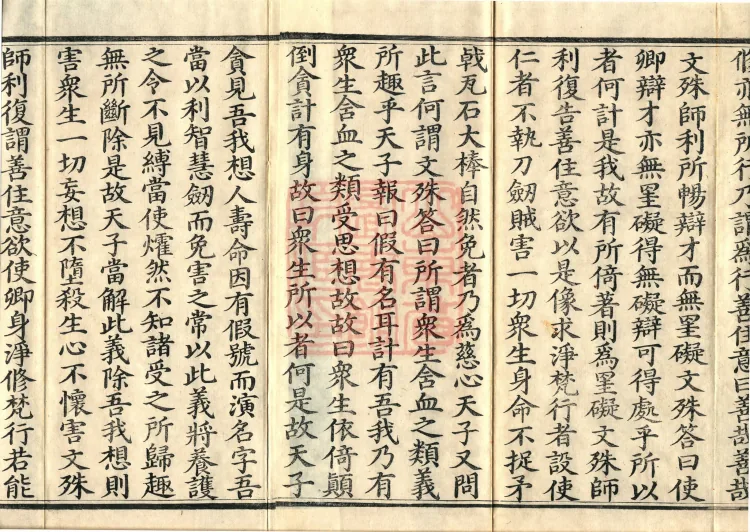 脩亦無所行乃謂爲行善住意曰善哉善哉
文殊師利所暢辯才而無罣礙文殊答曰使
卿辯才亦無罣礙得無礙辯可得處乎所以
者何計是我故有所倚著則爲罣礙文殊師
利復告善住意欲以是像求淨梵行者設使
仁者不執刀劒賊害一切衆生身命不捉矛
戟瓦石大棒自然免者乃爲慈心天子又問
此言何謂文殊答曰所謂衆生含血之類義
所趣乎天子報曰假有名耳計有吾我乃有
衆生含血之類受思想故故曰衆生依倚顛
倒貪計有身故曰衆生所以者何是故天子
貪見吾我想人壽命因有假號而演名字吾
當以利智慧劒而免害之常以此義將養護
之令不見縛當使燿然不知諸受之所歸趣
無所斷除是故天子當解此義除吾我想則
害衆生一切妄想不墮殺生心不懷害文殊
師利復謂善住意欲使卿身淨修梵行若能